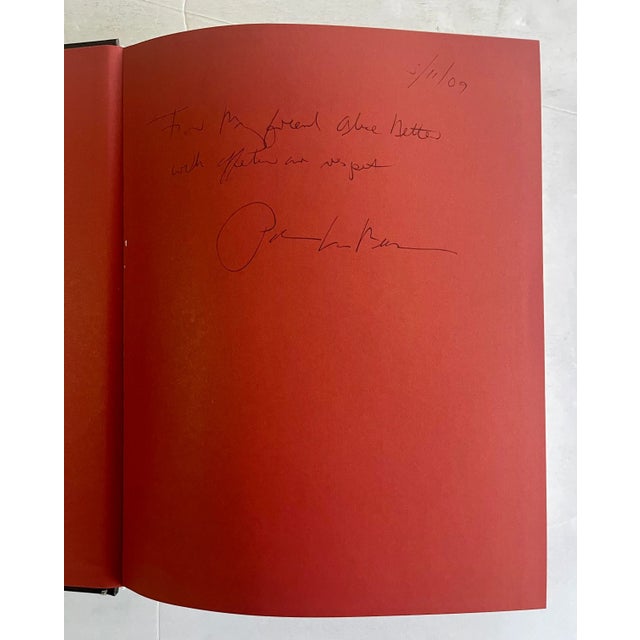 5/11/09
For My friend Alice Better
with affection and respect